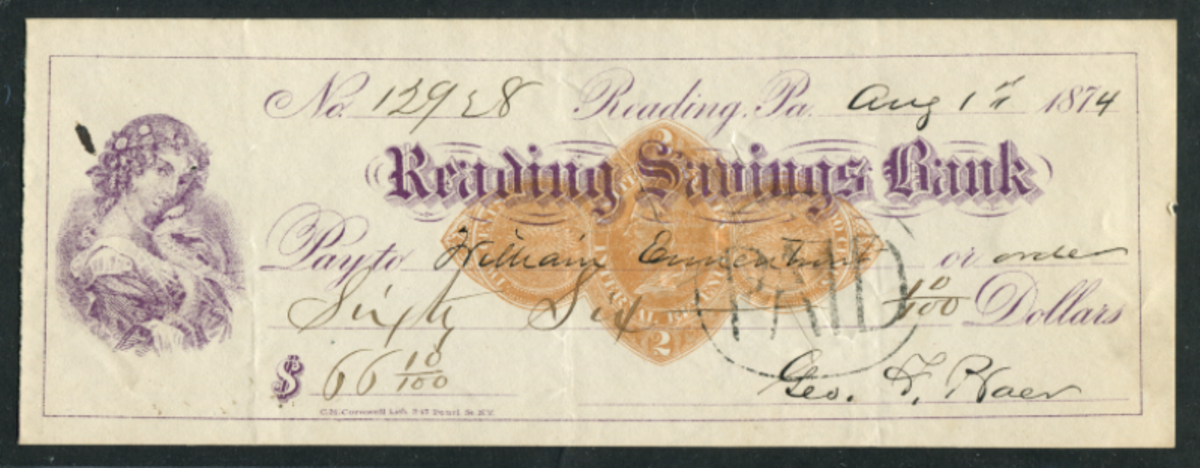 No. 12928 Reading, Pa. Aug 1st 1874
Reading Savings Bank
Pay to William or order
Sixty Six 10/100 Dollars
PAID
$ 66 10/100
Geo. F. Baer
C.H. Cornwell Lith. 247 Pearl St. N.Y.
2
2